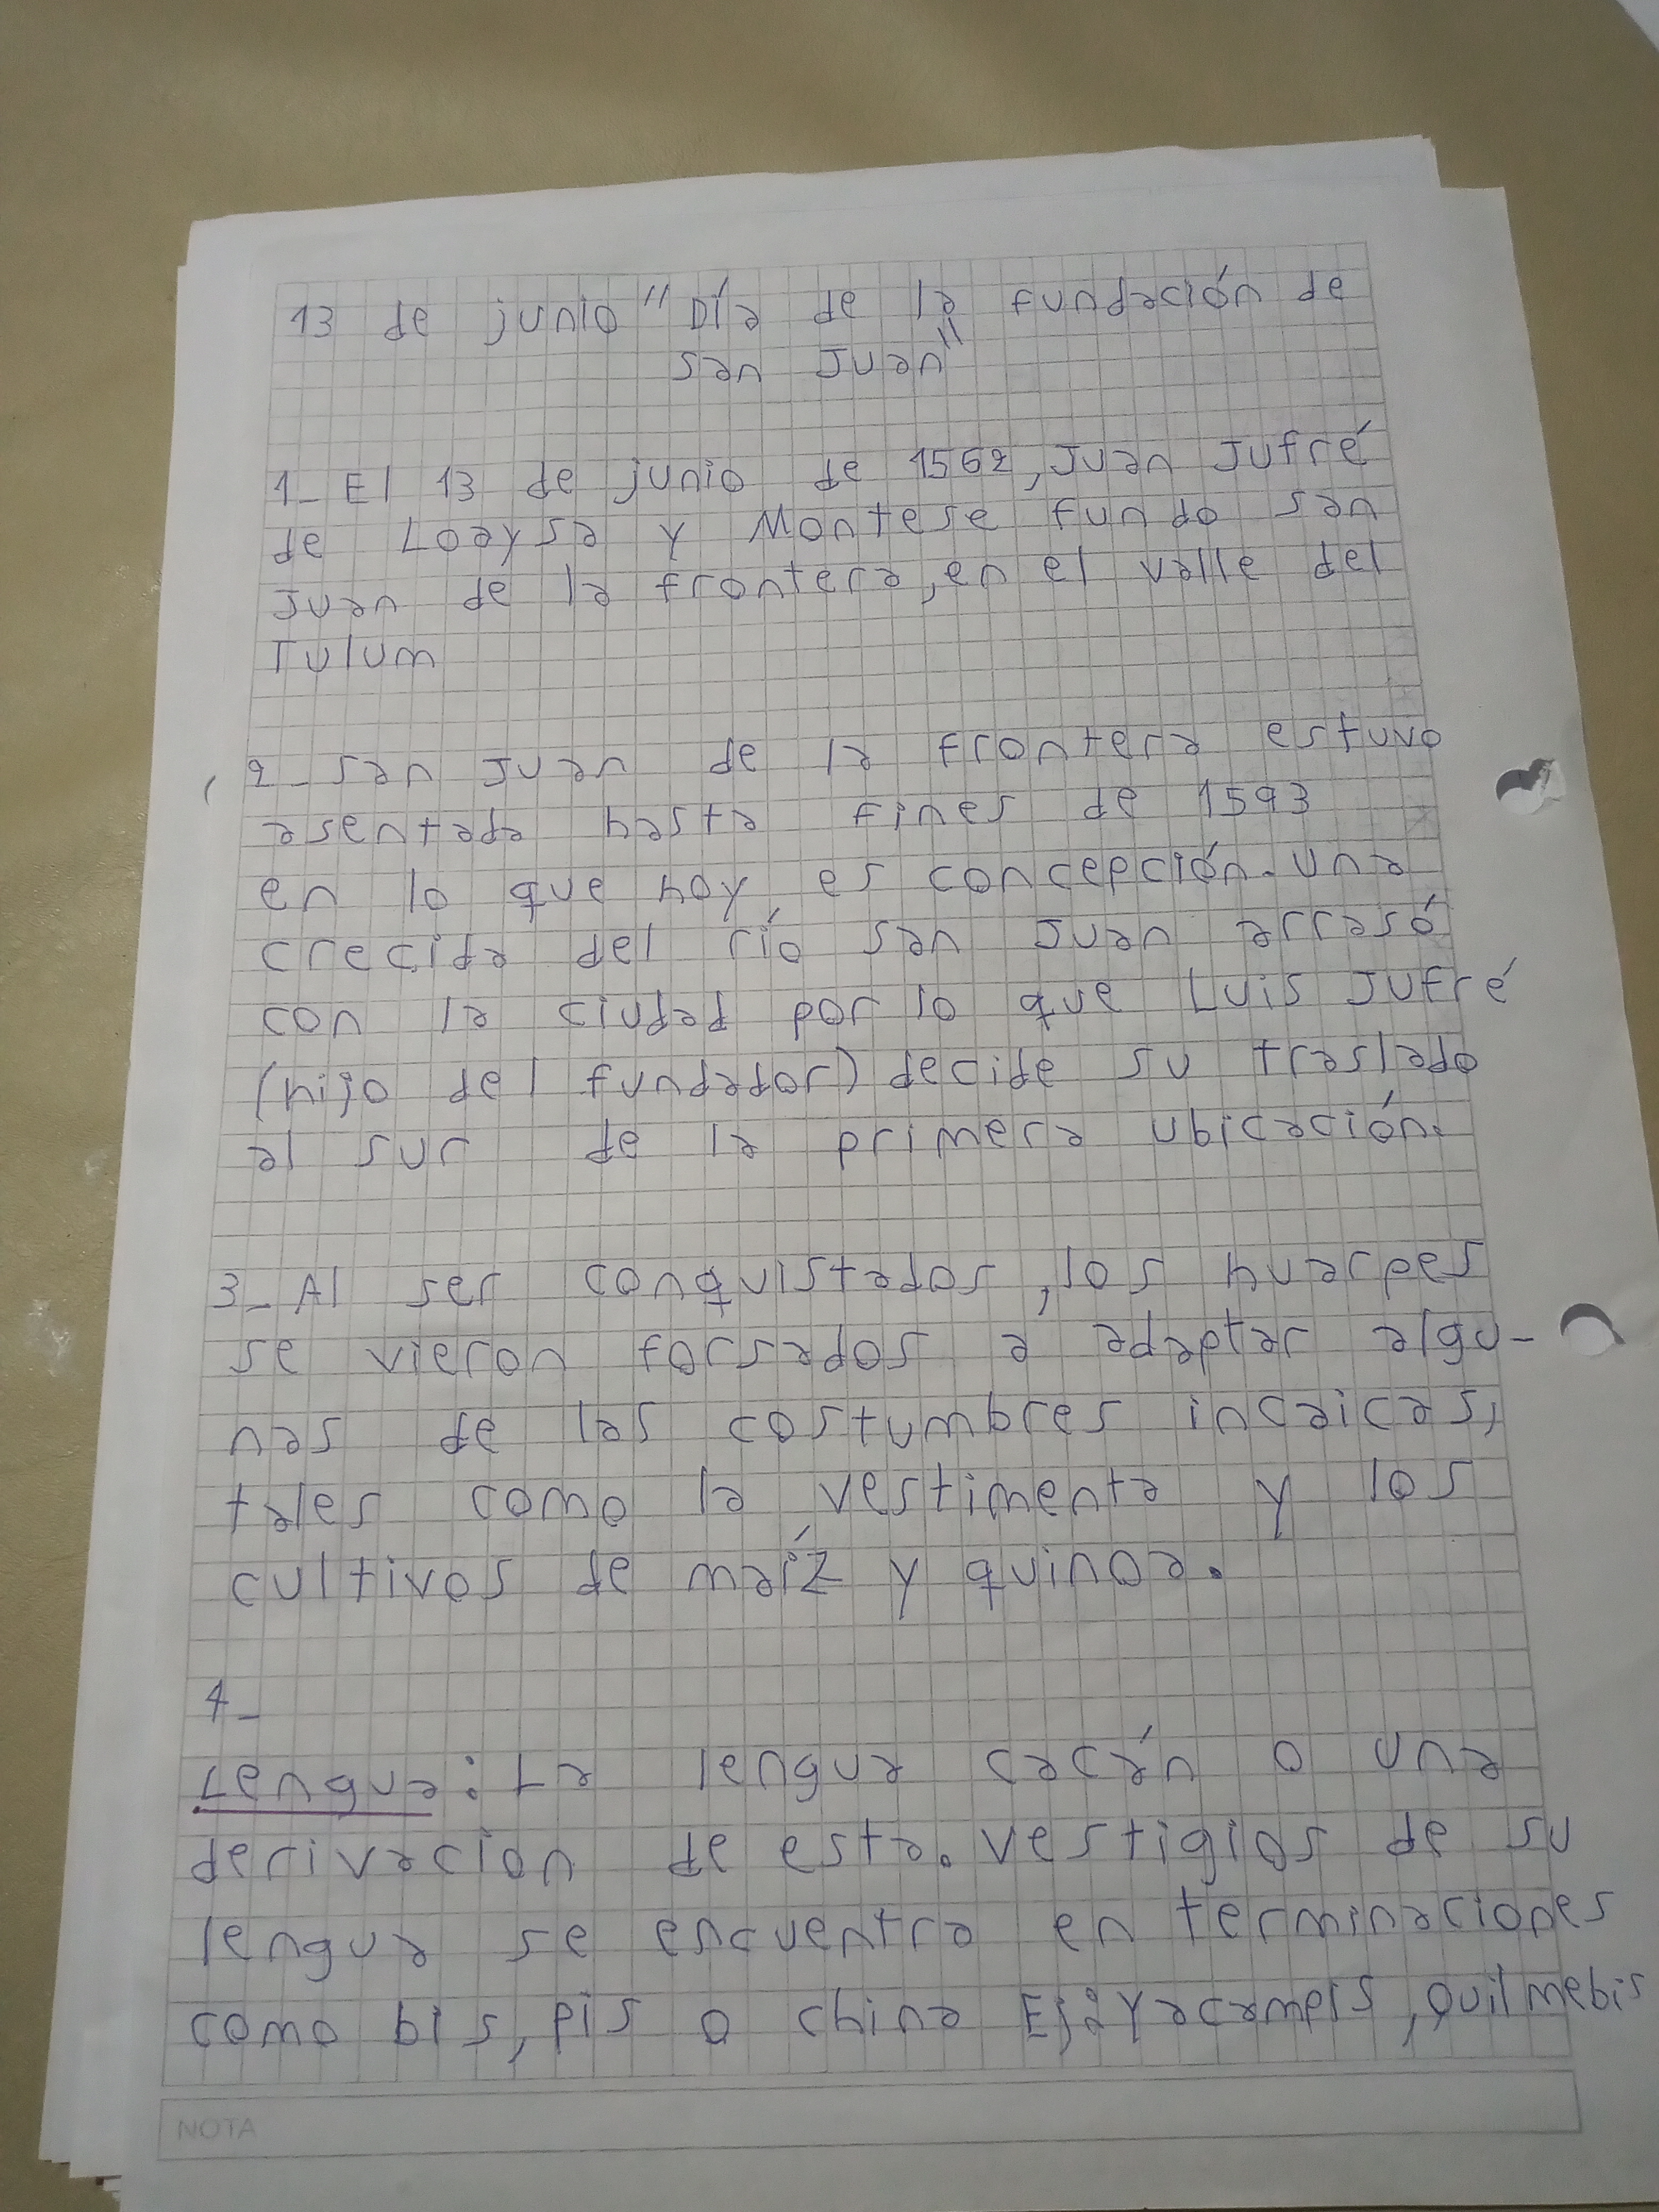 13 de junio "Día de la fundación de
San Juan"
1_ El 13 de junio de 1562, Juan Jufré
de Loaysa y Montese fundo san
Juan de la frontera, en el valle del
Tulum
2_ San Juan de la frontera estuvo
asentada hasta fines de 1593
en lo que hoy es concepción. Una
crecida del río San Juan arrasó
con la ciudad por lo que Luis Jufré
(hijo del fundador) decide su traslado
al sur de la primera ubicación.
3_ Al ser conquistados, los huarpes
se vieron forsados a adaptar algu-
nas de las costumbres incaicas,
tales como la vestimenta y los
cultivos de maíz y quinoa.
4_
Lengua: La lengua cacán o una
derivacion de esta. vestigios de su
lengua se encuentra en terminaciones
como bis, pis o china Ej: Yacampis, Quilmebis
NOTA